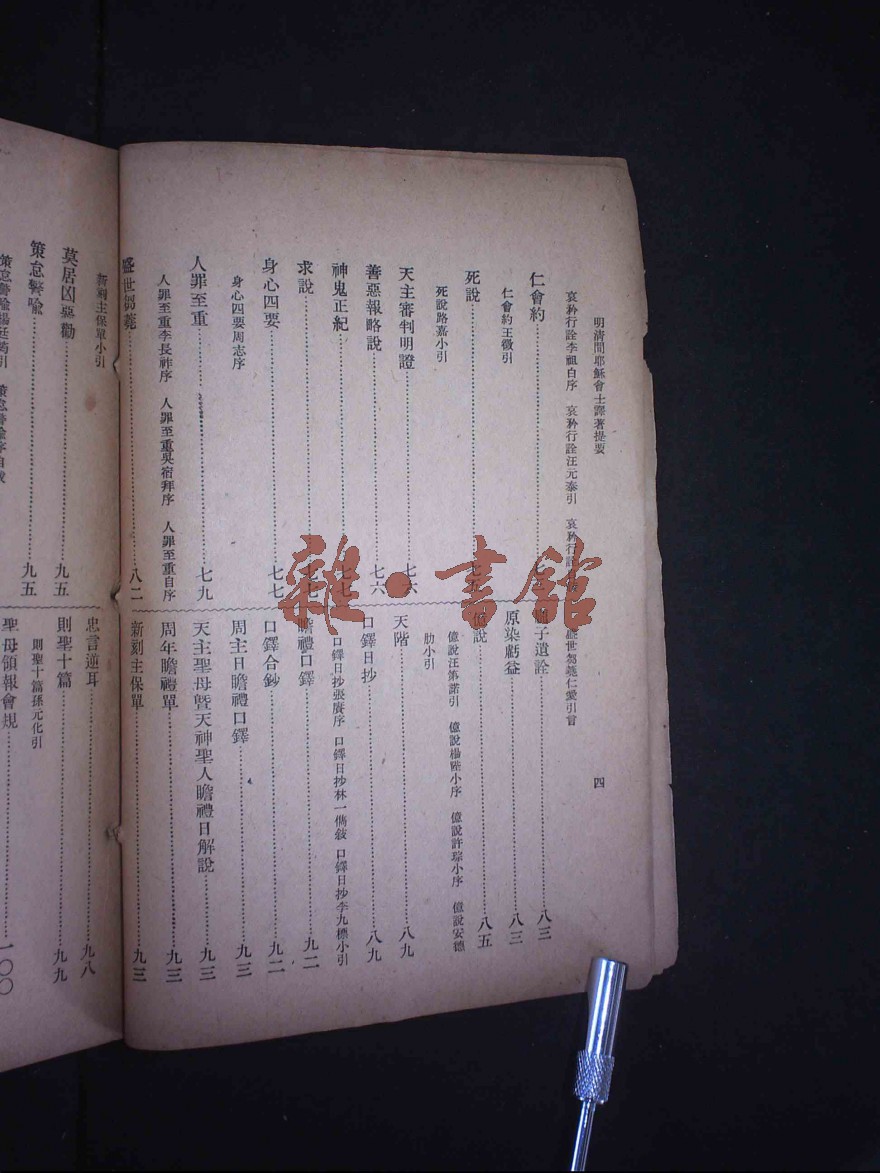 明清間耶穌會士譯著提要
四
哀矜行詮李祖白序 哀矜行詮汪元泰引 哀矜行詮
仁會約
仁會約王徵引
死說
死說路嘉小引
天主審判明證 七六
善惡報略說 七六
神鬼正紀 七七
求說 七七
身心四要 七七
身心四要周志序
人罪至重 七九
人罪至重李長祚序 人罪至重吳宿拜序 人罪至重自序
盛世芻蕘 八二
盛世芻蕘仁愛引言
子遺詮 八三
原染虧益 八三
億說 八五
億說汪第諾引 億說楊陛小序 億說許琮小序 億說安德
肋小引
天階 八九
口鐸日抄 八九
口鐸日抄張賡序 口鐸日抄林一儁敍 口鐸日抄李九標小引
瞻禮口鐸 九二
口鐸合鈔 九二
周主日瞻禮口鐸 九三
天主聖母暨天神聖人瞻禮日解說 九三
周年瞻禮單 九三
新刻主保單 九三
新刻主保單小引
莫居凶惡勸 九五
策怠警喻 九五
策怠警喻楊廷筠引 策怠警喻序自
忠言逆耳 九八
則聖十篇 九九
則聖十篇孫元化引
聖母領報會規 一〇〇
雜·書館